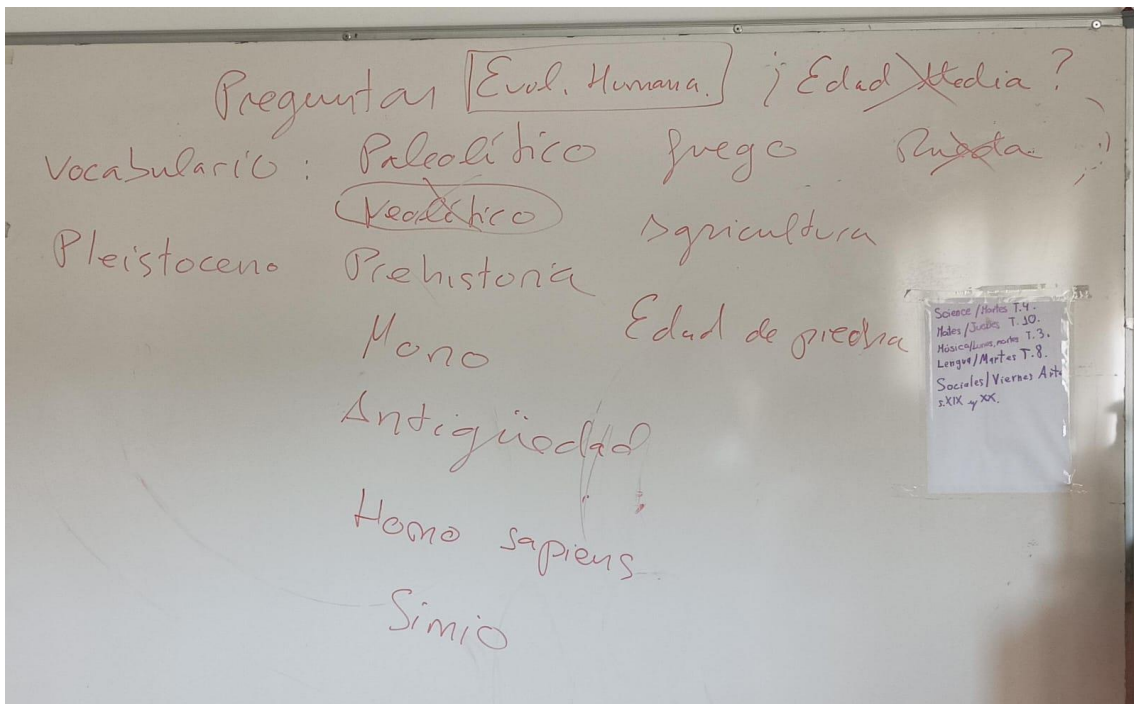 Preguntas Evol. Humana. ¿Edad Media?
Vocabulario: Paleolítico fuego Rueda
Neolítico
Agricultura
Pleistoceno Prehistoria
Edad de piedra
Mono
Antigüedad
Homo sapiens
Simio
Science/Martes T.4.
Mates/Jueves T.10.
Música/Lunes, martes T.3.
Lengua/Martes T.8.
Sociales/Viernes Arte
s.XIX y XX.